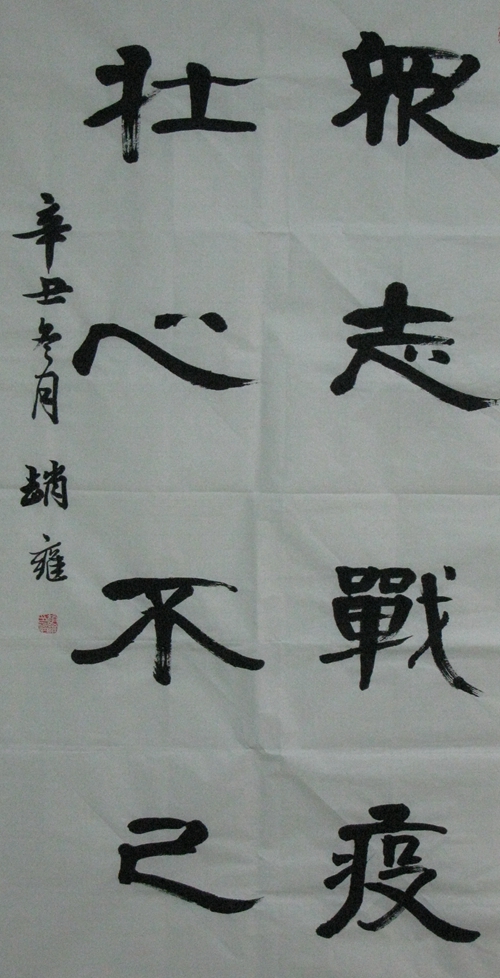 衆志戰疫
壮心不已
辛丑冬月 趙雍